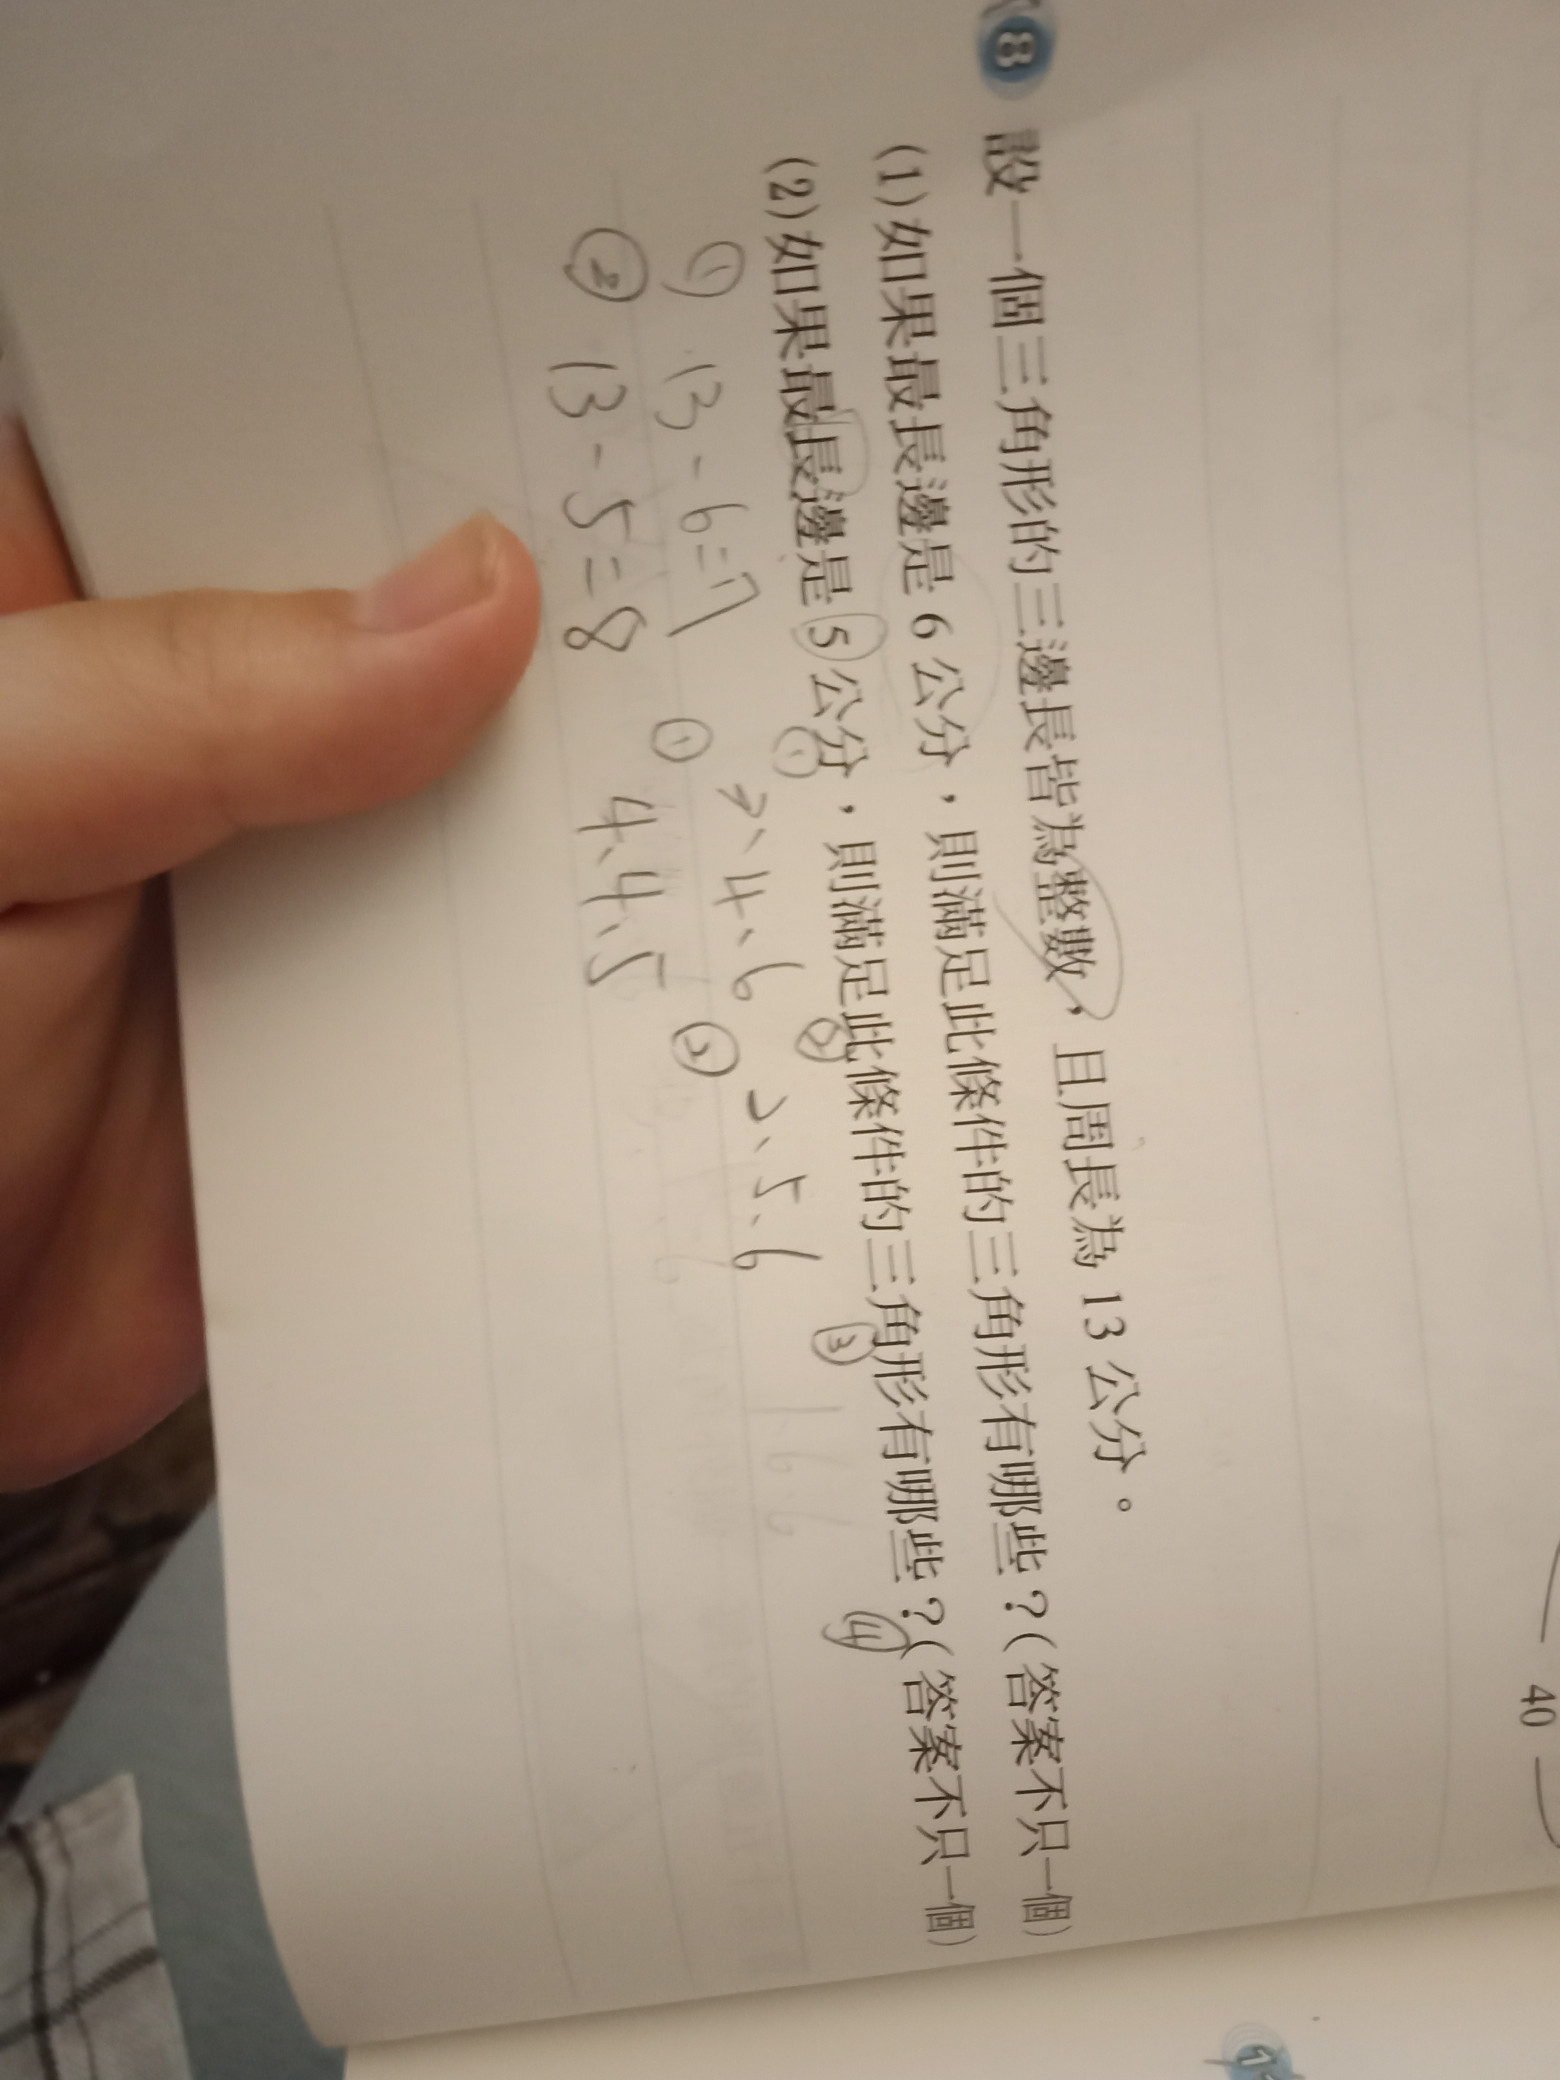 40
8 設一個三角形的三邊長皆為整數，且周長為 13 公分。
(1)如果最長邊是 6 公分，則滿足此條件的三角形有哪些？(答案不只一個)
(2)如果最長邊是 5 公分，則滿足此條件的三角形有哪些？(答案不只一個)
① ② ③ ④
① 13-6=7 3、4、6 2、5、6 1 6 6
② 13-5=8 ① 4、4、5 ②